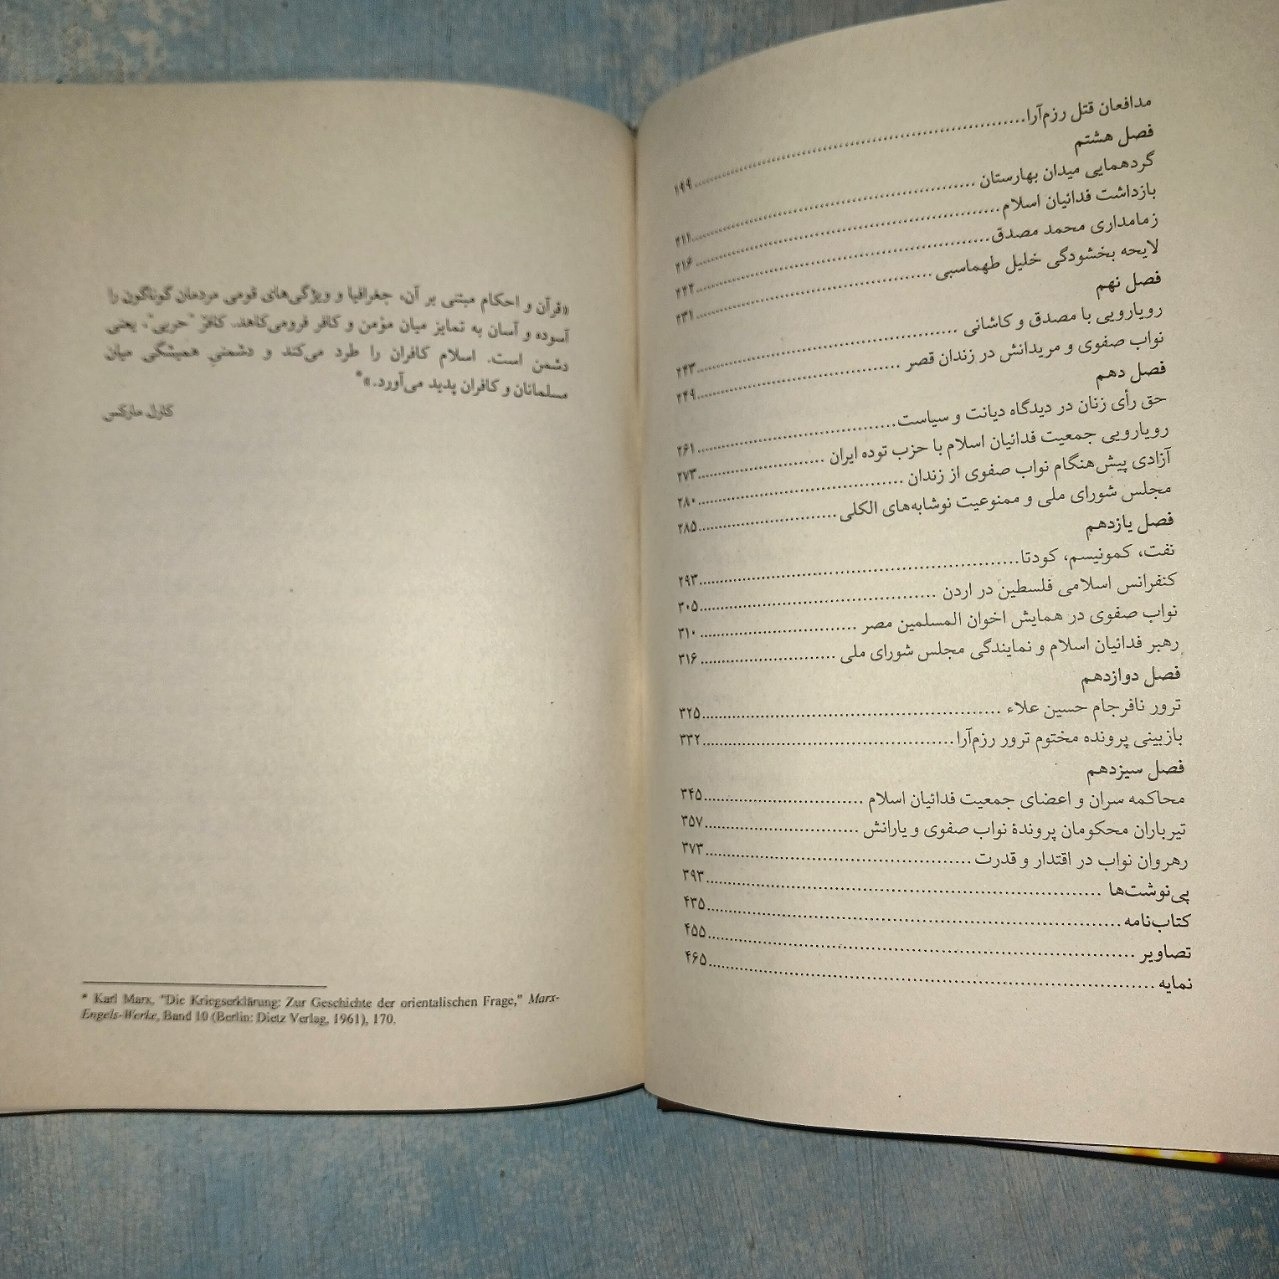 مدافعان قتل رزم‌آرا..........۱۹۹
فصل هشتم
گردهمایی میدان بهارستان..........۲۱۱
بازداشت فدائیان اسلام..........۲۱۶
زمامداری محمد مصدق..........۲۲۲
لایحه بخشودگی خلیل طهماسبی..........۲۳۱
فصل نهم
رویارویی با مصدق و کاشانی..........۲۴۳
نواب صفوی و مریدانش در زندان قصر..........۲۴۹
فصل دهم
حق رأی زنان در دیدگاه دیانت و سیاست..........۲۶۱
رویارویی جمعیت فدائیان اسلام با حزب توده ایران..........۲۷۳
آزادی پیش‌هنگام نواب صفوی از زندان..........۲۸۰
مجلس شورای ملی و ممنوعیت نوشابه‌های الکلی..........۲۸۵
فصل یازدهم
نفت، کمونیسم، کودتا..........۲۹۳
کنفرانس اسلامی فلسطین در اردن..........۳۰۵
نواب صفوی در همایش اخوان المسلمین مصر..........۳۱۰
رهبر فدائیان اسلام و نمایندگی مجلس شورای ملی..........۳۱۶
فصل دوازدهم
ترور نافرجام حسین علاء..........۳۲۵
بازبینی پرونده مختوم ترور رزم‌آرا..........۳۳۲
فصل سیزدهم
محاکمه سران و اعضای جمعیت فدائیان اسلام..........۳۴۵
تیرباران محکومان پروندهٔ نواب صفوی و یارانش..........۳۵۷
رهروان نواب در اقتدار و قدرت..........۳۷۳
پی‌نوشت‌ها..........۳۹۳
کتاب‌نامه..........۴۳۵
تصاویر..........۴۵۵
نمایه..........۴۶۵
«قرآن و احکام مبتنی بر آن، جغرافیا و ویژگی‌های قومی مردمان گوناگون را
آسوده و آسان به تمایز میان مؤمن و کافر فرومی‌کاهد. کافر "حربی"، یعنی
دشمن است. اسلام کافران را طرد می‌کند و دشمنیِ همیشگی میان
مسلمانان و کافران پدید می‌آورد.»*
کارل مارکس
* Karl Marx, "Die Kriegserklärung: Zur Geschichte der orientalischen Frage," Marx-
Engels-Werke, Band 10 (Berlin: Dietz Verlag, 1961), 170.